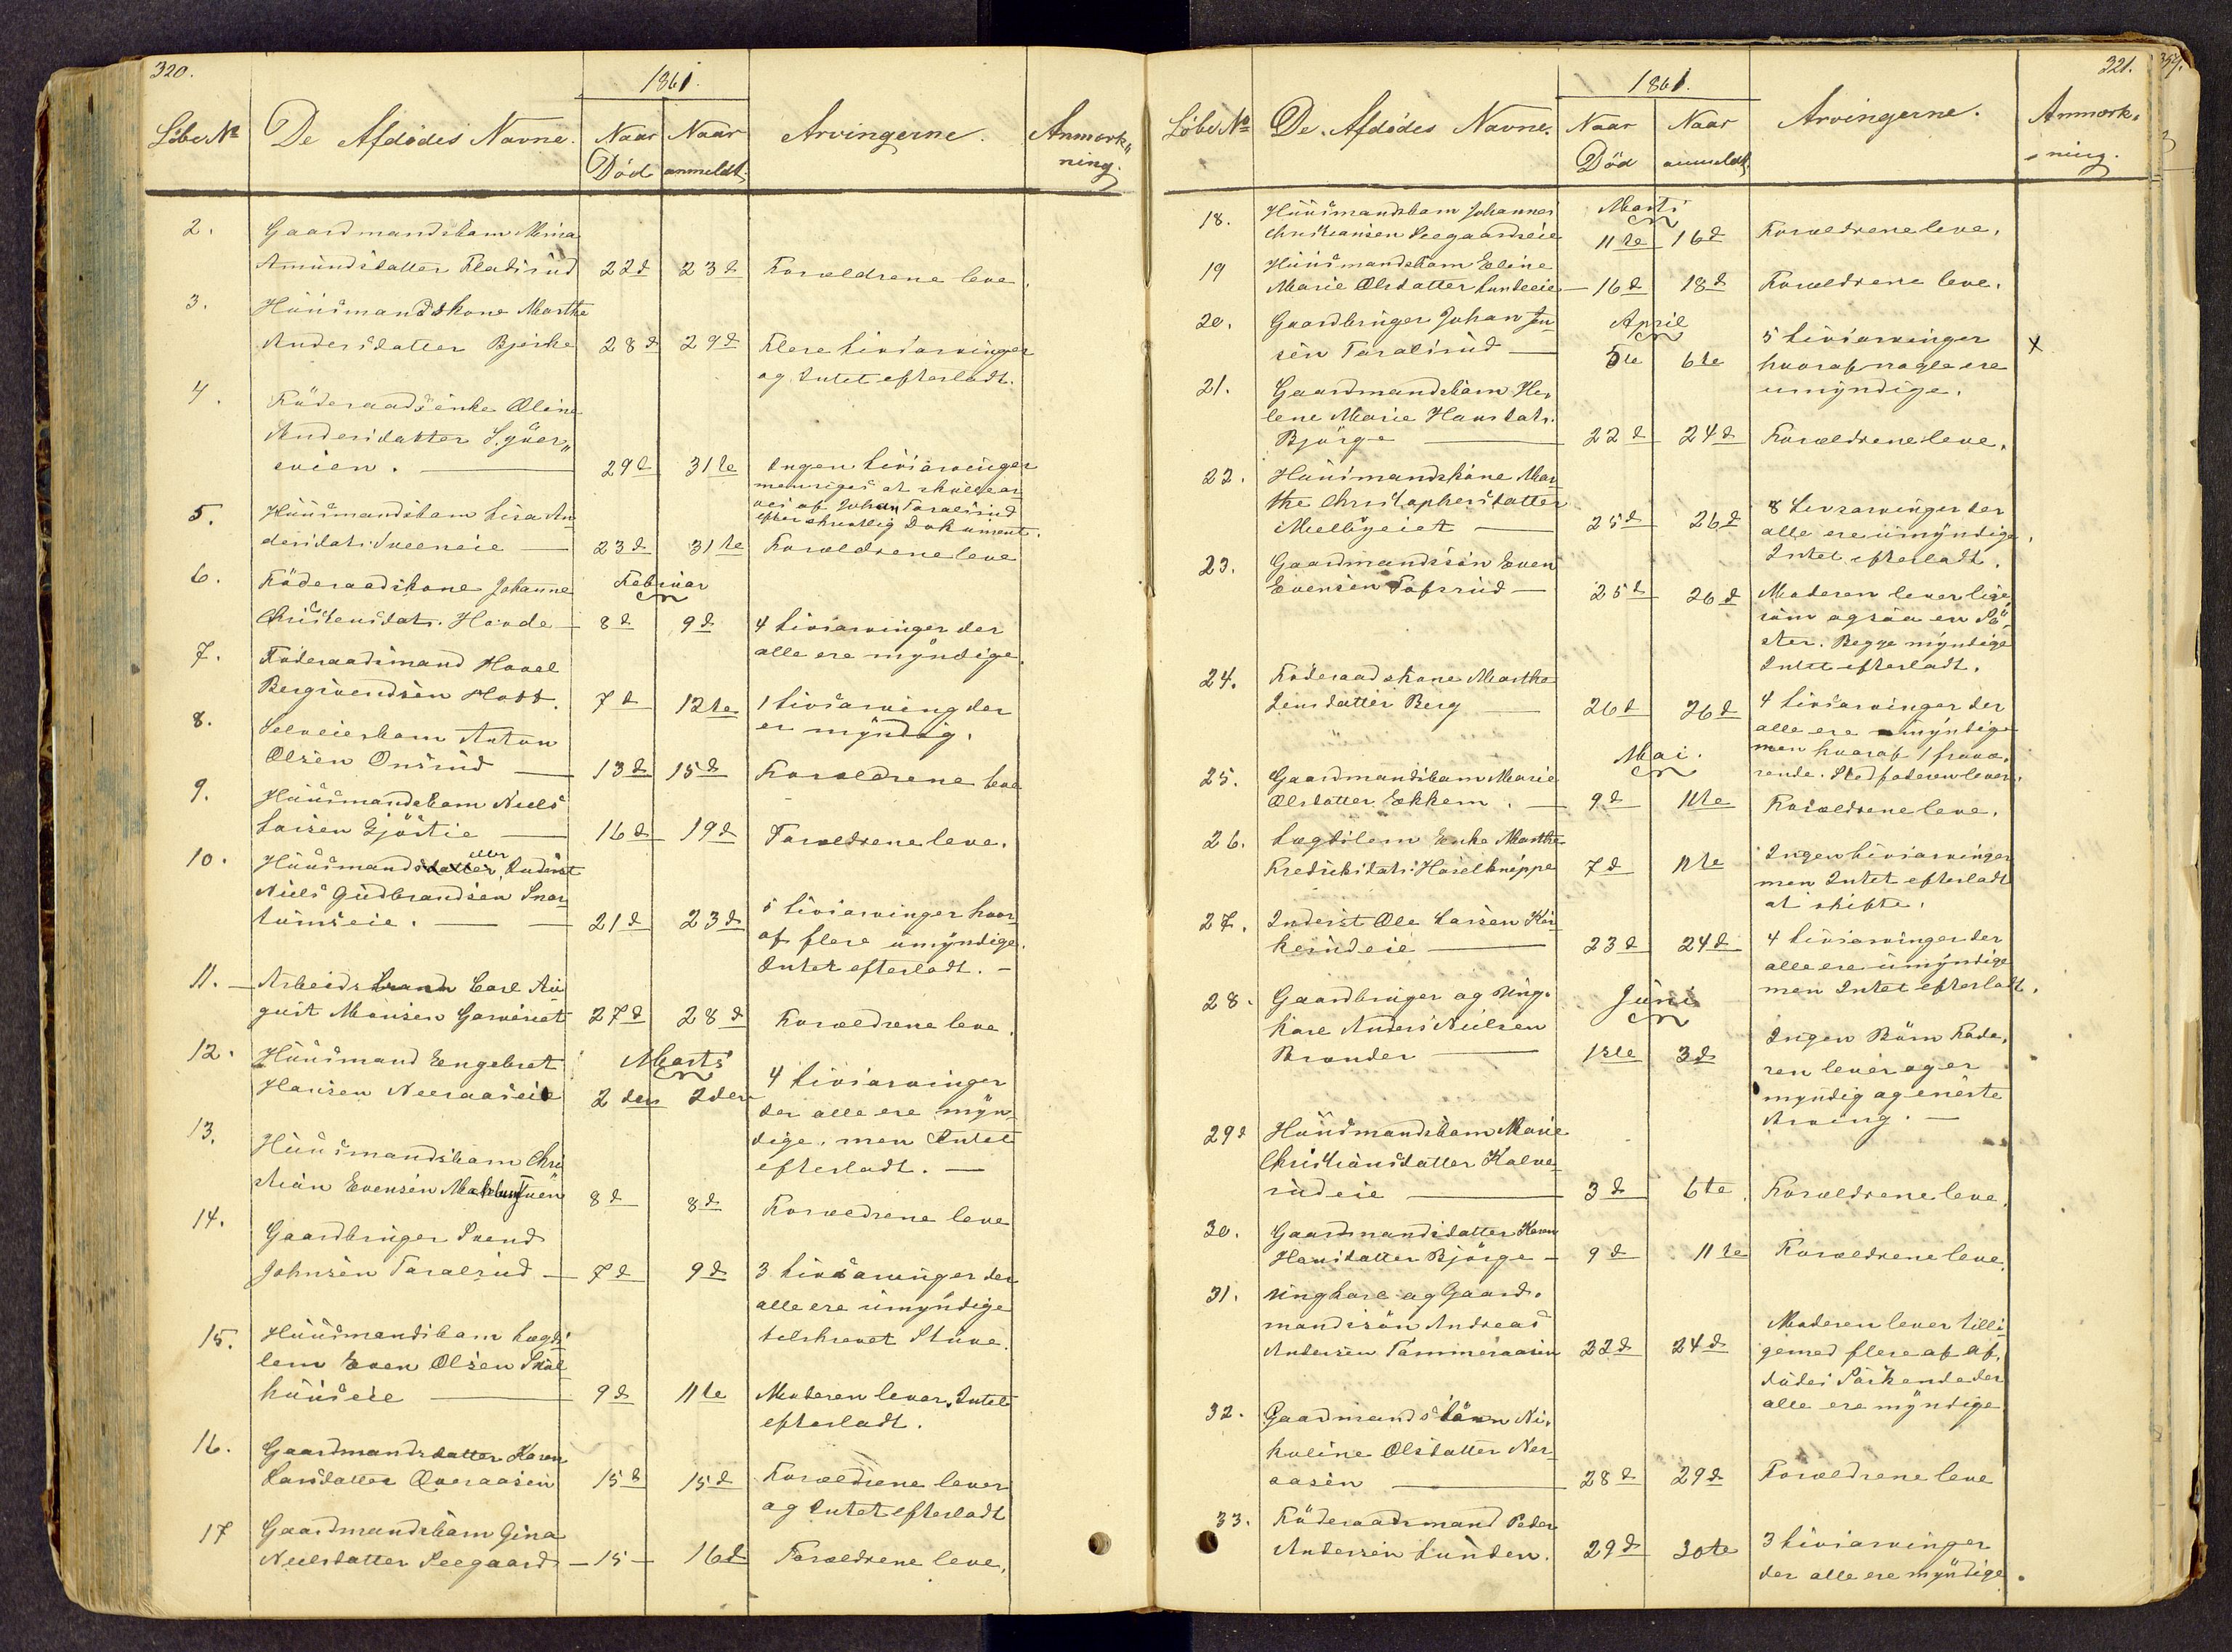 320.
1861.
Löbe No De Afdödes Navne. Naar Död Naar anmeldt. Arvingerne. Anmærkning.
2. Gaardmandsbarn Mina
Amundsdatter Fladsrud 22d 23d Forældrene leve.
3. Huusmandskone Marthe
Andersdatter Bjerke 28d 29d Flere Livsarvinger
og Intet efterladt.
4. Föderaadsenke Oline
Andersdatter
eien. 29d 31te Ingen Livsarvinger
men siges at skulle ar
ves af Johan Taralsrud
efter skriftlig Dokument.
5. Huusmandsbarn Lisa An
dersdatr. Sveeneie 23d 31te Forældrene leve
6. Föderaadskone Johanne Februar
Christensdatr. Hovde 8d 9d 4 Livsarvinger der
alle ere myndige.
7. Föderaadsmand Hovel
Bergsvendsen Hoff. 7d 12te 1 Livsarving der
er myndig.
8. Selveierbarn Anton
Olsen Onsrud 13d 15d Forældrene leve
9. Huusmandsbarn Niels
Larsen Gjöstie 16d 19d Forældrene leve.
10. Huusmandsdatter eller Inderst
Niels Gudbrandsen Snar
tumseie. 21d 23d 5 Livsarvinger hvor
af flere umyndige.
Intet efterladt.
11. Arbeidsbarn Carl Au
gust Monsen Garveriet 27d 28d Forældrene leve.
12. Huusmand Engebret Marts
Hansen Neeraaseie 2den 2den 4 Livsarvinger
der alle ere myn
dige, men Intet
efterladt.
13. Huusmandsbarn Chri
stian Evensen 8d 8d Forældrene leve
14. Gaardbruger Svend
Johnsen Taralsrud 7d 9d 3 Livsarvinger der
alle ere umyndige
tilskrevet Skuve.
15. Huusmandsbarn Lægds
lem Even Olsen Skol
huuseie 9d 11te Moderen lever. Intet
efterladt.
16. Gaardmandsdatter Karen
Larsdatter Overaasen 15d 15d Forældrene lever
og Intet efterladt
17 Gaardmandsbarn Gina
Nielsdatter Seegaard 15 16d Forældrene leve.
321.
1861.
Löbe No De Afdödes Navne. Naar Död Naar anmeldt Arvingerne. Anmærkning.
18. Huusmandsbarn Johannes Marts
Christiansen Seegaardseie 11te 16d Forældrene leve.
19 Huusmandsbarn Eline
Marie Olsdatter Lundeeie 16d 18d Forældrene leve.
20. Gaardbruger Johan Jen April
sen Taralsrud 5te 6te 5 Livsarvinger x
hvoraf nogle ere
umyndige.
21. Gaardmandsbarn He
lene Marie Hansdatr.
Björge 22d 24d Forældrene leve.
22. Huusmandskone Mar
the Christophersdatter
Melbyeiet 25d 26d 8 Livsarvinger der
alle ere umyndige.
Intet efterladt.
23. Gaardmandssön Even
Evensen Tofsrud 25d 26d Moderen lever lige
som ogsaa en Sö
ster. Begge myndige
Intet efterladt.
24. Föderaadskone Marthe
Jensdatter Berg 26d 26d 4 Livsarvinger der
alle ere myndige
men hvoraf 1 fravæ
rende. Stedfaderen lever.
25. Gaardmandsbarn Marie Mai.
Olsdatter Ekkern. 9d 11te Forældrene leve.
26. Lægdslem Enke Marthe
Fredriksdatr. Hasselknippe 7d 11te Ingen Livsarvinger
men Intet efterladt
at skifte.
27. Inderst Ole Larsen Kir
kerudeie 23d 24d 4 Livsarvinger der
alle ere umyndige
men Intet efterladt.
28. Gaardbruger og Ung Juni
karl Anders Nielsen
Brander 1ste 3d Ingen Börn Fade
ren lever og er
myndig og eneste
Arving.
29d Huusmandsbarn Marie
Christiansdatter Kalve
rudeie 3d 6te Forældrene leve.
30. Gaardmandsdatter Karen
Hansdatter Björge 9d 11te Forældrene leve.
31. Ungkarl og Gaard
mandssön Andreas
Andersen Tömmeraasen 22d 24d Moderen lever tilli
gemed flere af Af
dödes Söskende der
alle ere myndige
32. Gaardmandsbarn Ni
koline Olsdatter Ner
aasen 28d 29d Forældrene leve
33. Föderaadsmand Peder
Andersen Lunden. 29d 30te 3 Livsarvinger
der alle ere myndige.